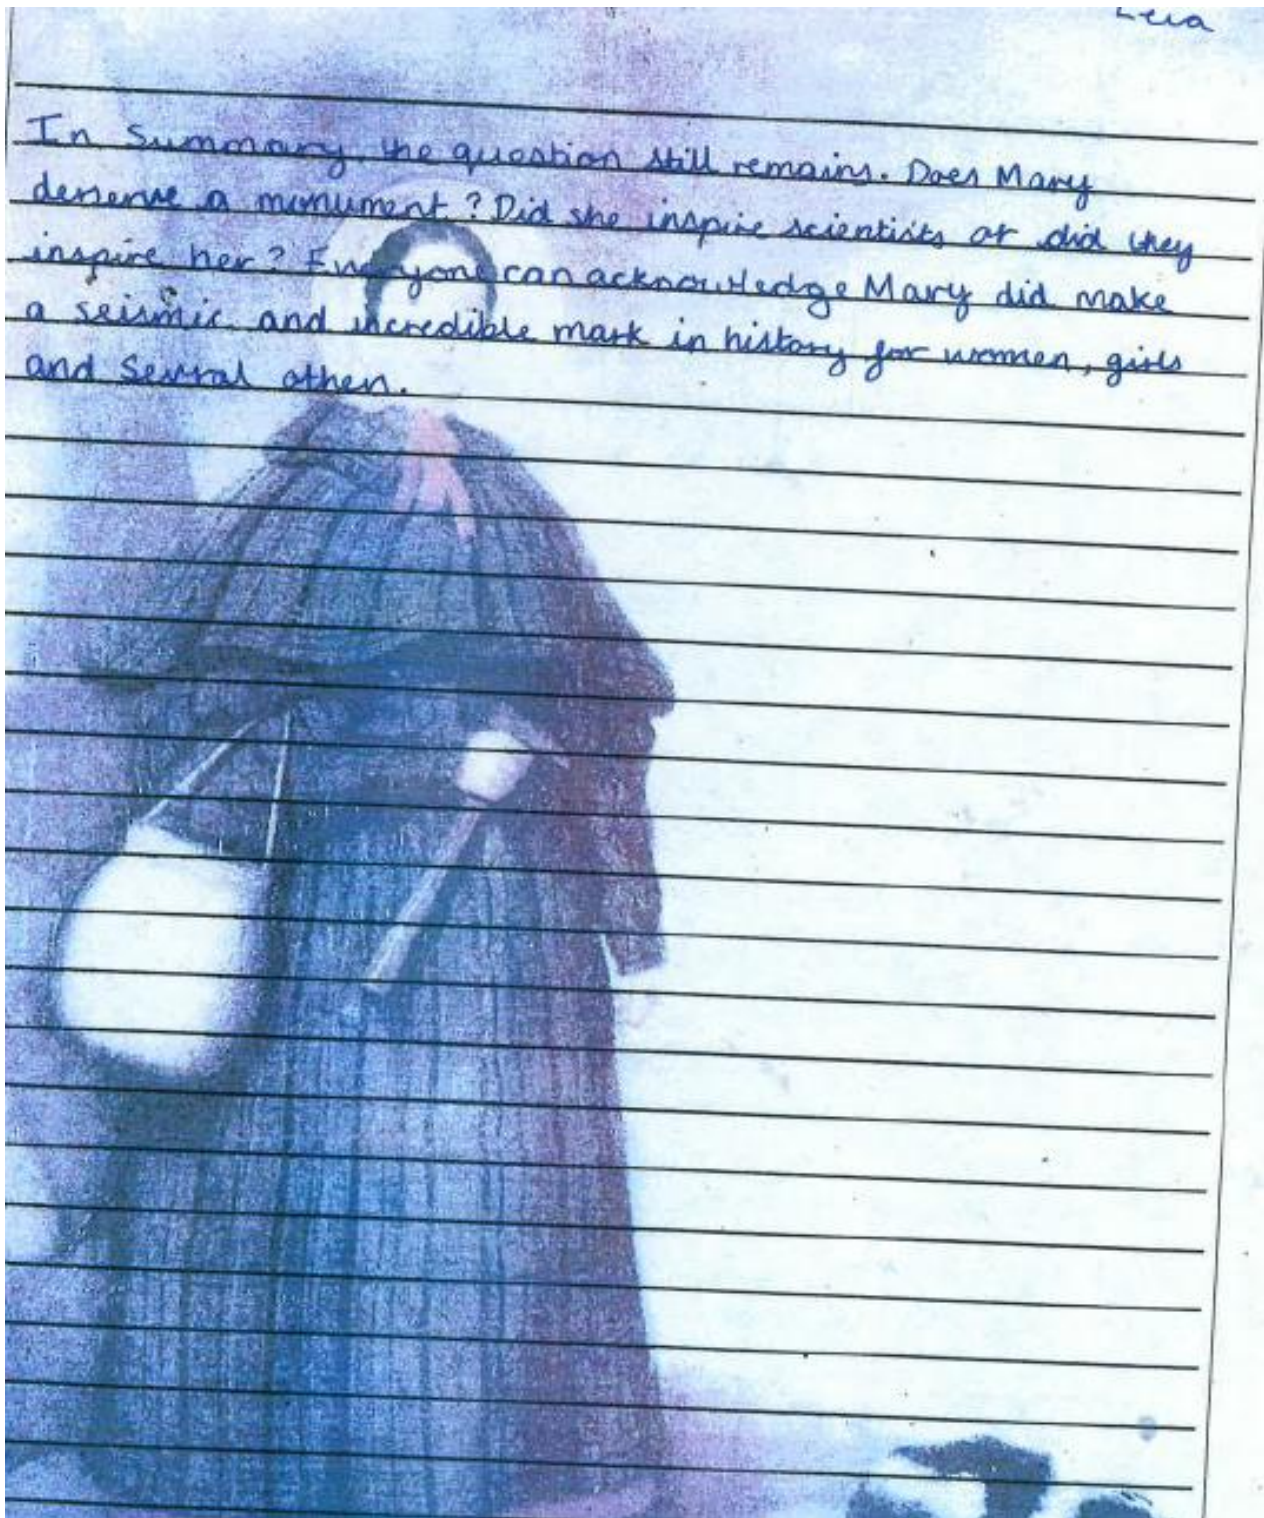 Leia
In Summary, the question still remains. Does Mary
deserve a monument? Did she inspire scientists or did they
inspire her? Everyone can acknowledge Mary did make
a seismic and incredible mark in history for women, girls
and several others.